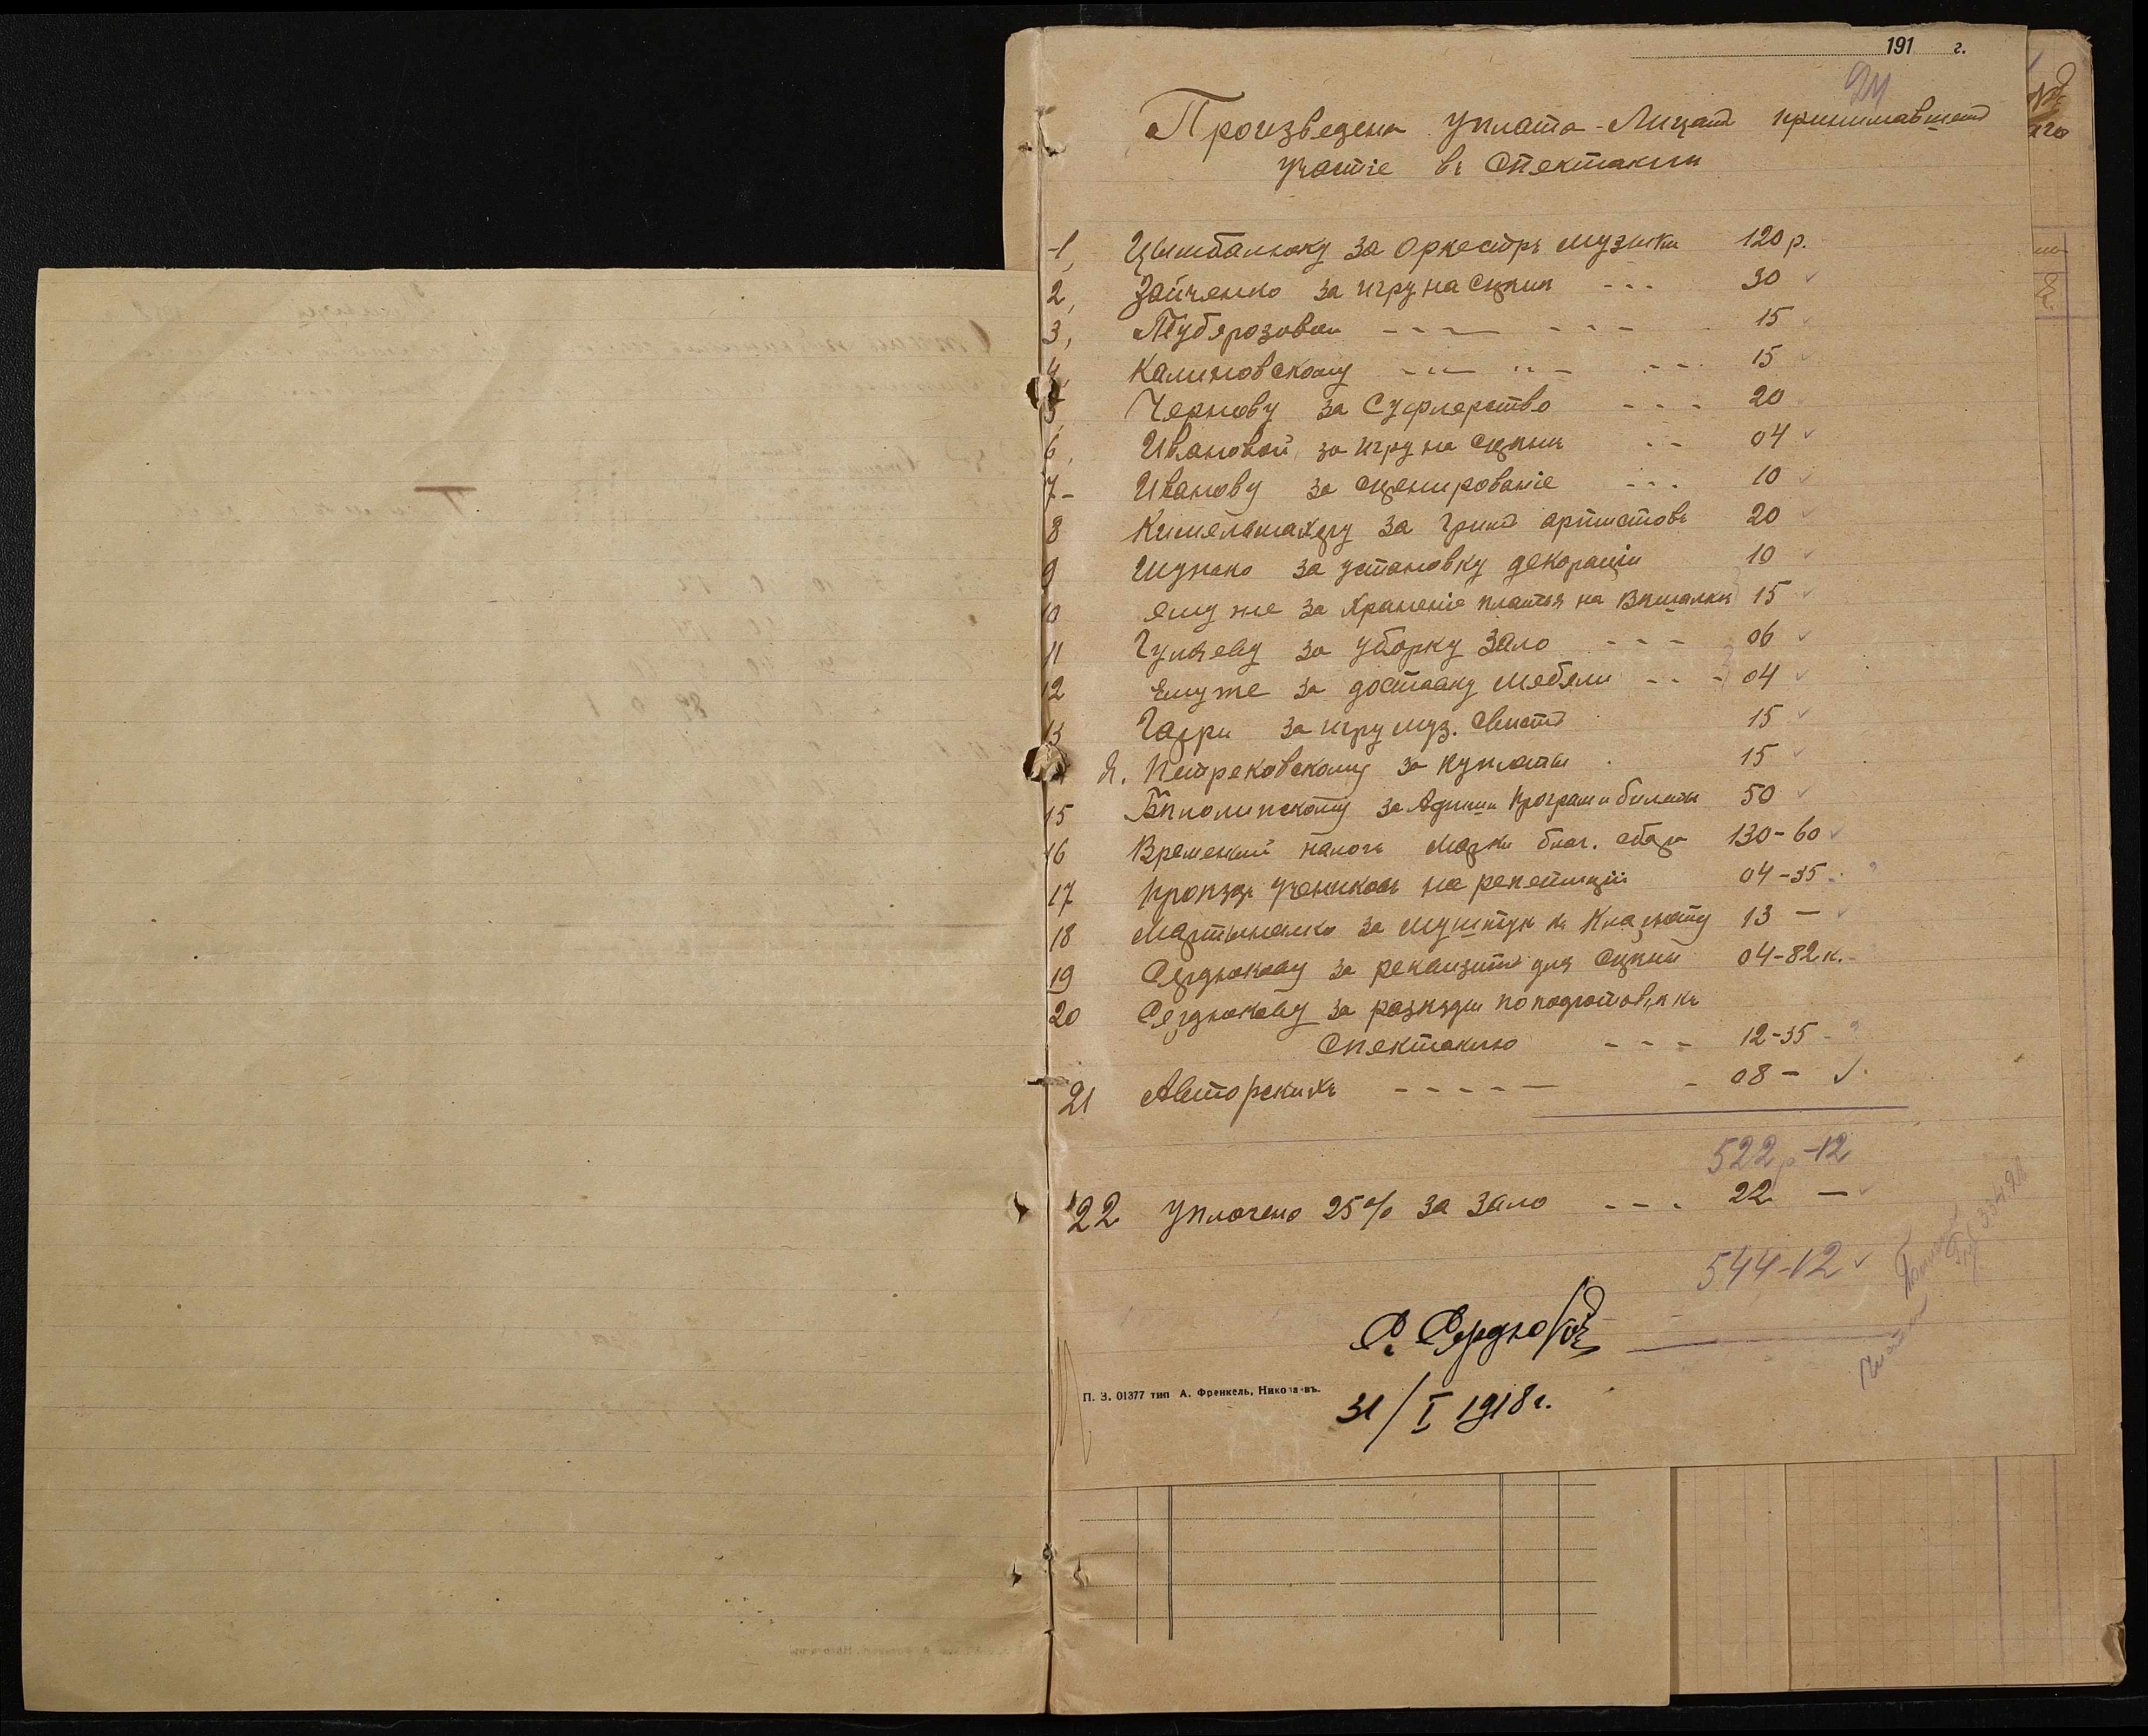 191 г.
24
Произведена уплата Лицам принимавшем
участіе въ Спектакли
1, Цымбалюку за Оркестръ музыки 120 р.
2, Зайченко за игру на Сцѣни - - - 30
3, Туберозовои - - - - - - 15
4, Калиновскому - " - " - - - - 15
5, Чернову за Суфлерство - - - 20
6, Ивановой за игру на Сценѣ - - 04
7- Иванову за сценированіе - - - 10
8 за Грим артистовъ 20
9 за установку декораціи 10
10 ему же за Храненіе платья на Вѣшалки 15
11 за уборку Зало - - - 06
12 Ему же за доставку мебели - - - 04
13 Гарри за игру муз. Свист 15
Я. Петрековскому за куплеты 15
15 за Афиши програм и билеты 50
16 Временный налогъ марки благ. сбора 130-60
17 проѣздъ учениковъ на репетиціи 04-35
18 Мартыненко за муштукъ къ Кларнету 13 —
19 Сердюкову за реквизит для Сцѣны 04-82 к.
20 Сердюкову за разъѣзды по подготовкѣ къ
Спектаклю - - - 12-35
21 Авторскихъ - - - - - - 08 -
522 р -12
22 Уплочено 25% за Зало - - - 22 —
544-12
С. Сердюковъ
П. З. 01377 тип А. Френкель, Николаевъ.
31/I 1918 г.